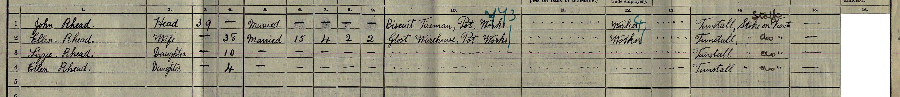 1 John Rhead. Head 39 — Married — — — — Biscuit Fireman, Pot. Works Worker Tunstall, Stoke on Trent Staffs —
2 Ellen Rhead. Wife — 38 Married 15 4 2 2 Glost Warehouse, Pot. Works Worker Tunstall, " Do " —
3 Lizzie Rhead. Daughter — 10 Tunstall " Do " —
4 Ellen Rhead. Daughter — 4 Tunstall " Do " —
5